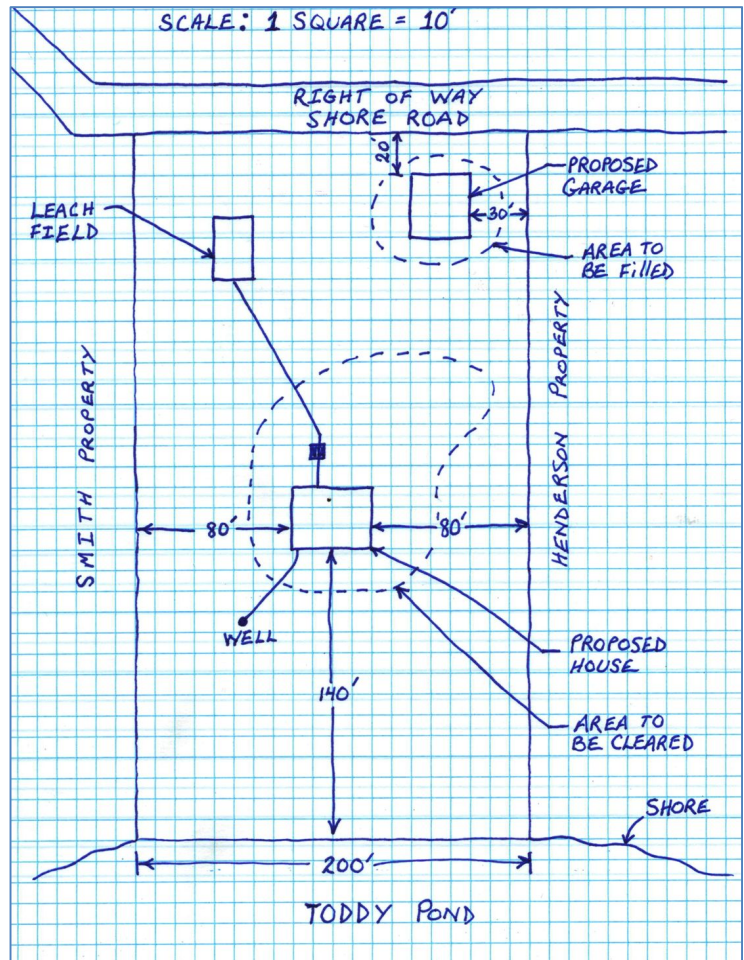 SCALE: 1 SQUARE = 10'
RIGHT OF WAY
SHORE ROAD
20'
PROPOSED
GARAGE
LEACH
FIELD
30'
AREA TO
BE FillED
SMITH PROPERTY
HENDERSON PROPERTY
80'
80'
WELL
PROPOSED
HOUSE
140'
AREA TO
BE CLEARED
SHORE
200'
TODDY POND